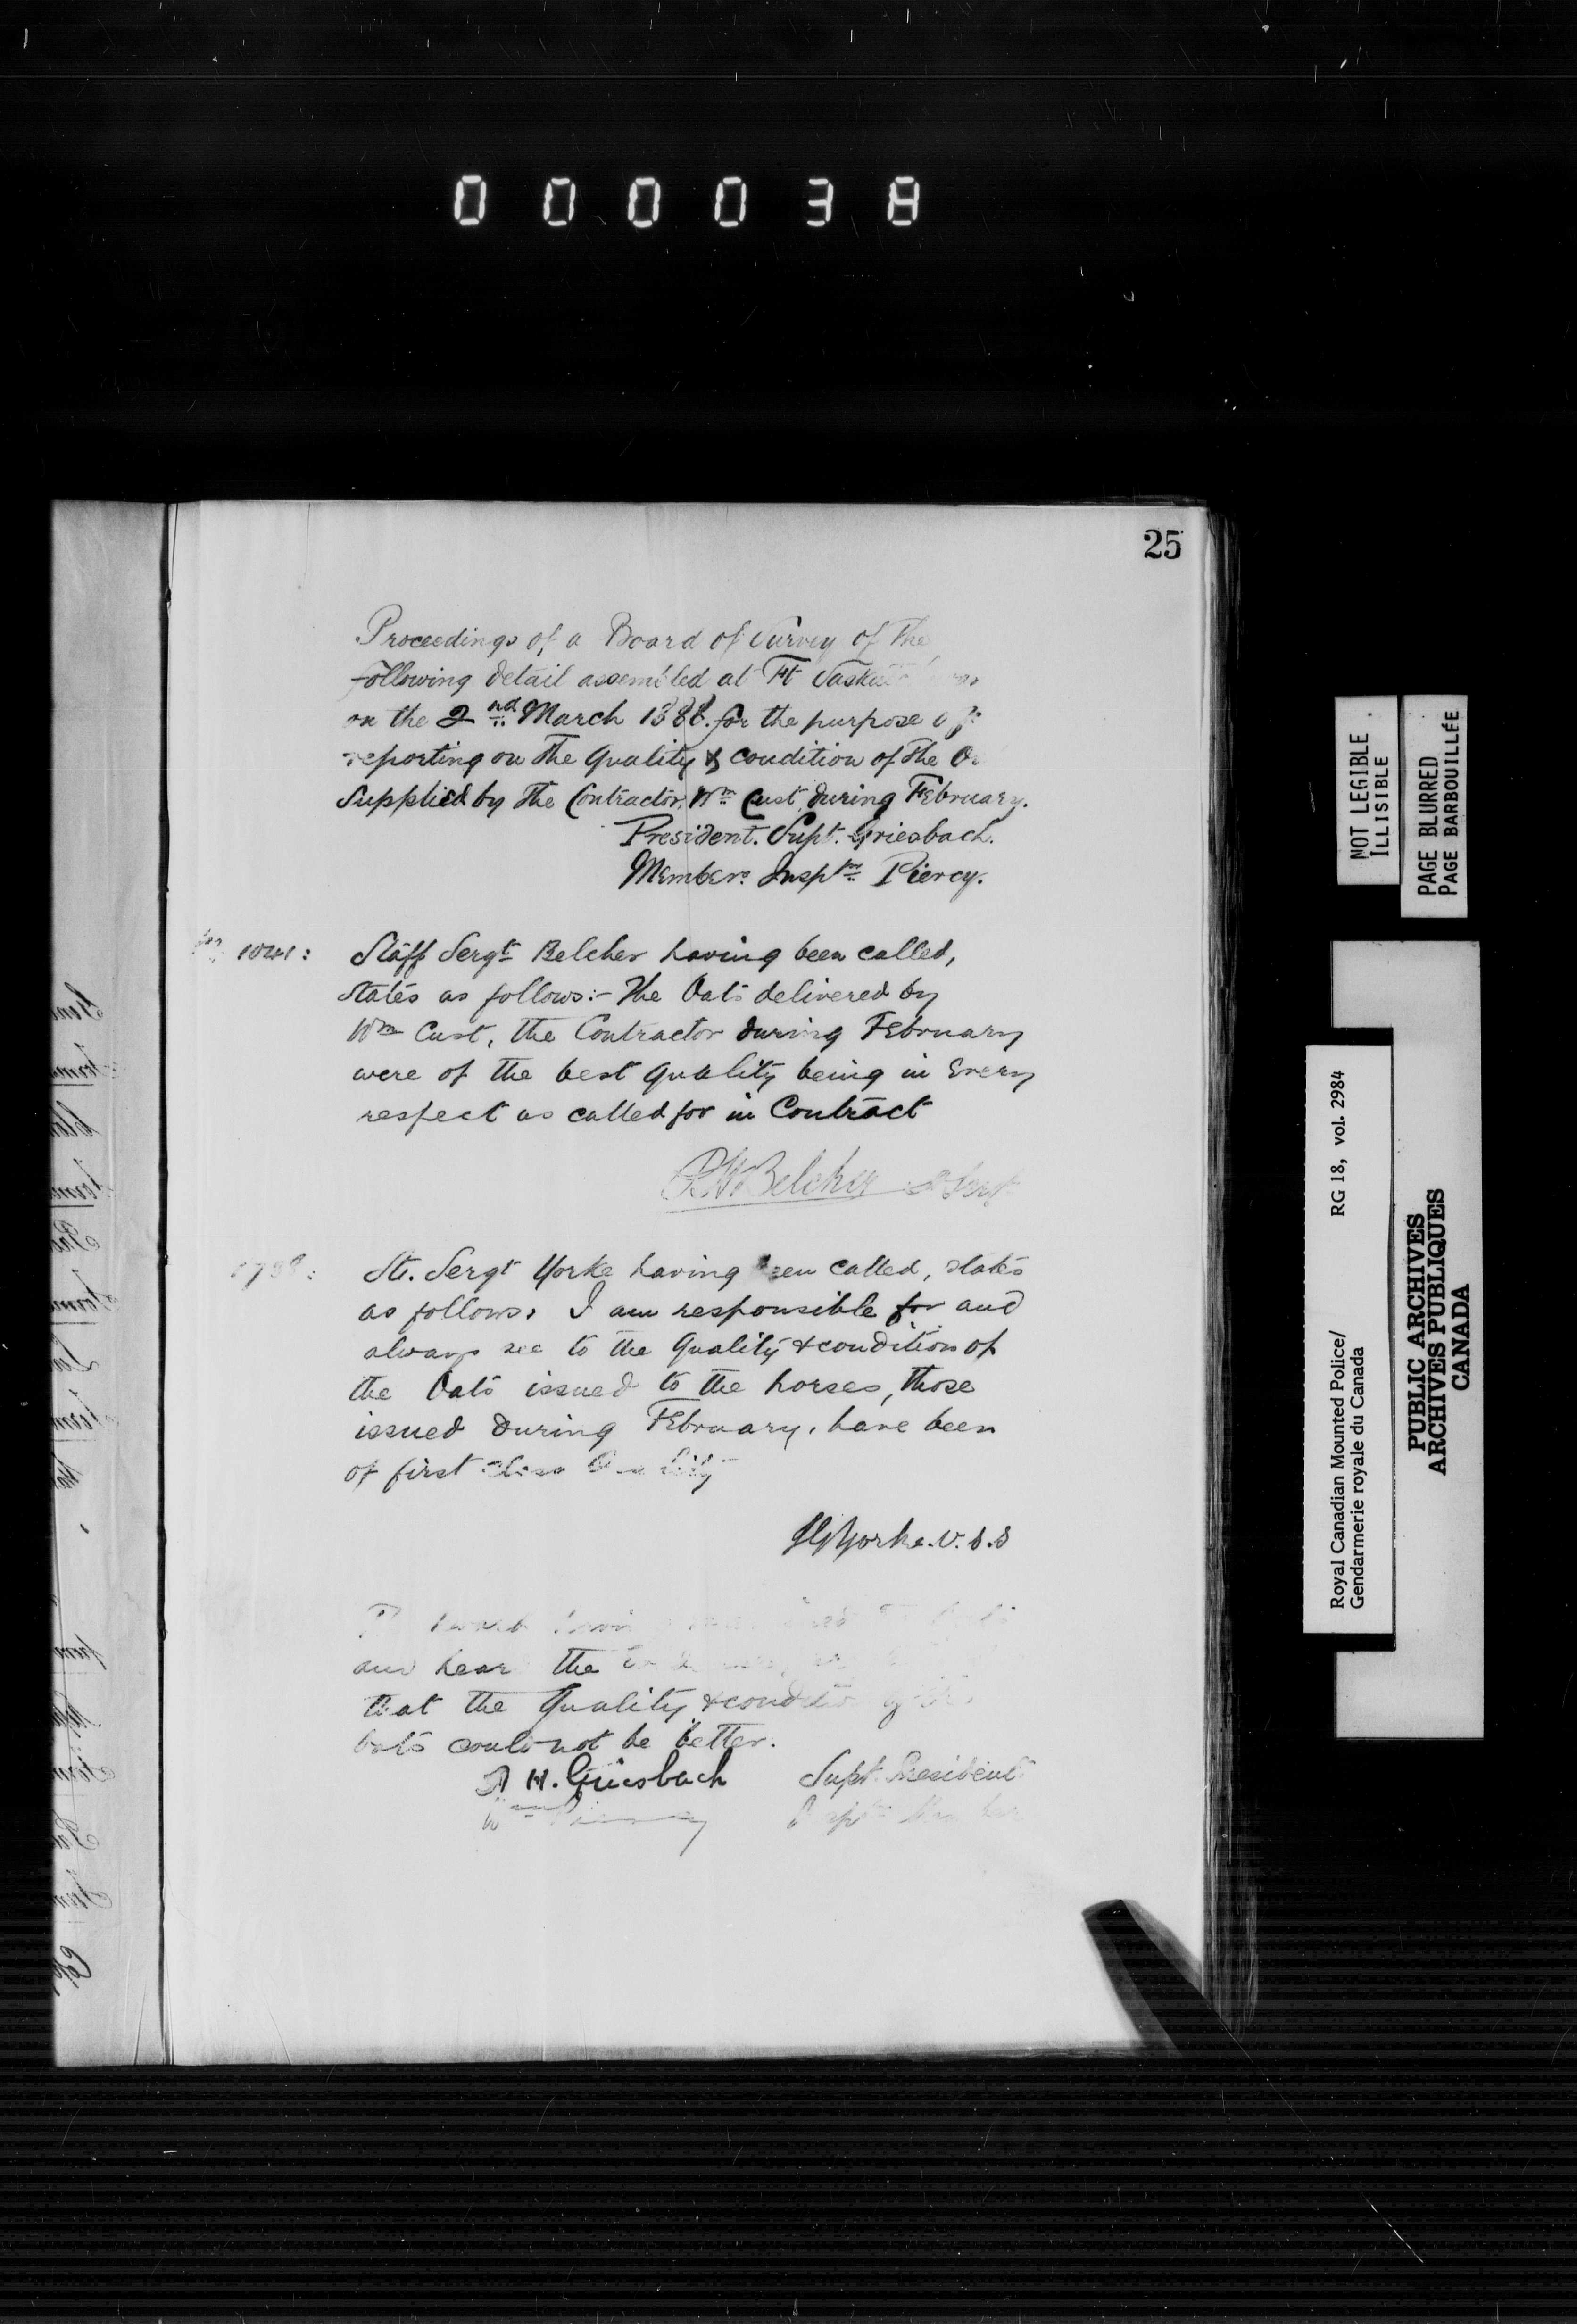 000038
25
Proceedings of a Board of Survey of the
following detail assembled at Ft
on the 2nd March 1888. for the purpose of
reporting on the quality & condition of the
supplied by the Contractor, Wm Cust, during February.
President. Supt. Griesbach.
Member. Inspt. Piercy.
1041: Staff Sergt Belcher having been called,
states as follows:- The Oats delivered by
Wm Cust, the Contractor during February
were of the best quality being in Every
respect as called for in Contract
Belcher S Sergt
St. Sergt Yorke having been called, states
as follows: I am responsible for and
always see to the quality & condition of
the Oats issued to the horses, those
issued during February, have been
of first
Yorke. V.S.S
and the
that the quality &
Oats could not be better.
A H. Griesbach Supt. President
NOT LEGIBLE
ILLISIBLE
PAGE BLURRED
PAGE BARBOUILLÉE
Royal Canadian Mounted Police/ RG 18, vol. 2984
Gendarmerie royale du Canada
PUBLIC ARCHIVES
ARCHIVES PUBLIQUES
CANADA